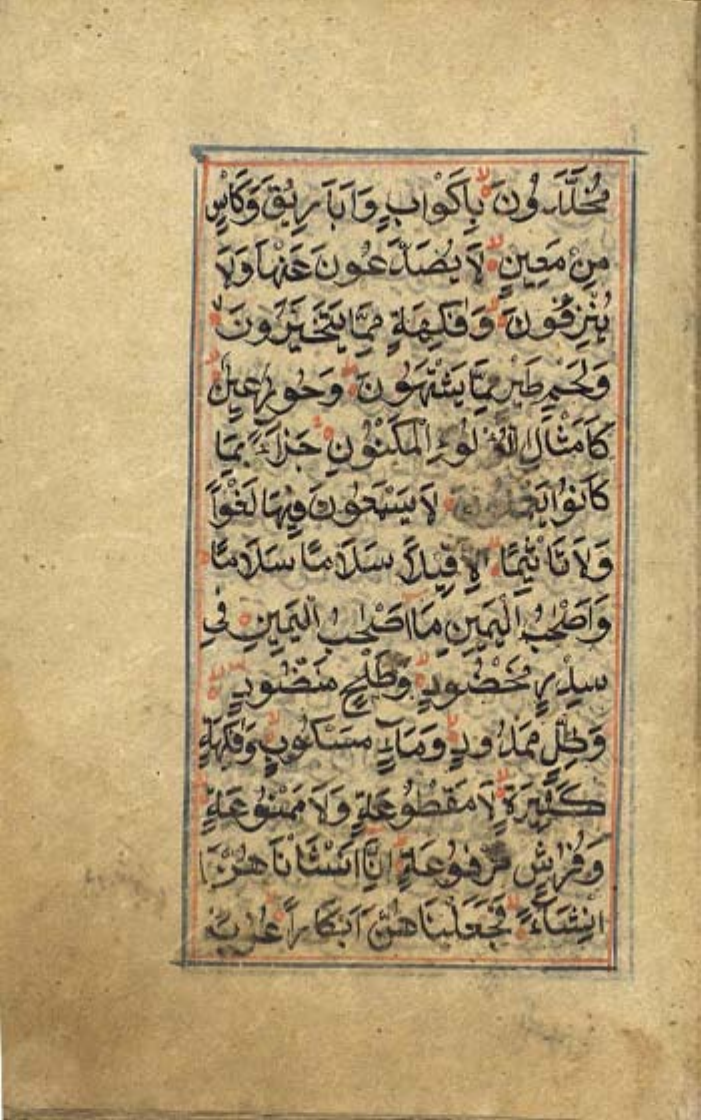 مُخَلَّدُونَ بِاَكْوَابٍ وَاَبَارِيْقَ وَكَاْسٍ
مِنْ مَعِيْنٍ لَا يُصَدَّعُوْنَ عَنْهَا وَلَا
يُنْزِفُوْنَ وَفَاكِهَةٍ مِمَّا يَتَخَيَّرُوْنَ
وَلَحْمِ طَيْرٍ مِمَّا يَشْتَهُوْنَ وَحُوْرٌ عِيْنٌ
كَاَمْثَالِ اللُّؤْلُوءِ الْمَكْنُوْنِ جَزَآءً بِمَا
كَانُوْا لَا يَسْمَعُوْنَ فِيْهَا لَغْوًا
وَلَا تَاْثِيْمًا اِلَّا قِيْلًا سَلَامًا سَلَامًا
وَاَصْحٰبُ الْيَمِيْنِ مَا اَصْحٰبُ الْيَمِيْنِ فِي
سِدْرٍ مَخْضُوْدٍ وَطَلْحٍ مَنْضُوْدٍ
وَظِلٍّ مَمْدُوْدٍ وَمَآءٍ مَسْكُوْبٍ وَفَاكِهَةٍ
كَثِيْرَةٍ لَا مَقْطُوْعَةٍ وَلَا مَمْنُوْعَةٍ
وَفُرُشٍ مَرْفُوْعَةٍ اِنَّا اَنْشَاْنَاهُنَّ
اِنْشَآءً فَجَعَلْنَاهُنَّ اَبْكَارًا عُرُبًا